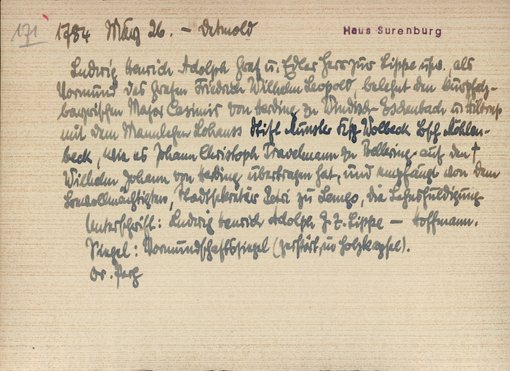 171 1784 März 26. - Detmold Haus Surenburg
Ludwig Henrich Adolph Graf u. Edler Herr zur Lippe usw., als
Vormund des Grafen Friedrich Wilhelm Leopold, belehnt den kurpfalz-
bayrischen Major Casimir von Harding zu Windisch-Eschenbach u.
mit dem Mannlehen Lohaus Stift Münster Ksp. Wolbeck Bsch.
beck, wie es Johann Christoph Travelmann zu auf den †
Wilhelm Johann von Harding übertragen hat, und empfängt von dem
Bevollmächtigten, Stadtsekretär Petri zu Lemgo, die Lehnshuldigung
Unterschrift: Ludwig Henrich Adolph G. z. Lippe - Hoffmann.
Siegel: Vormundschaftssiegel (zerstört, in Holzkapsel).
Or. Perg